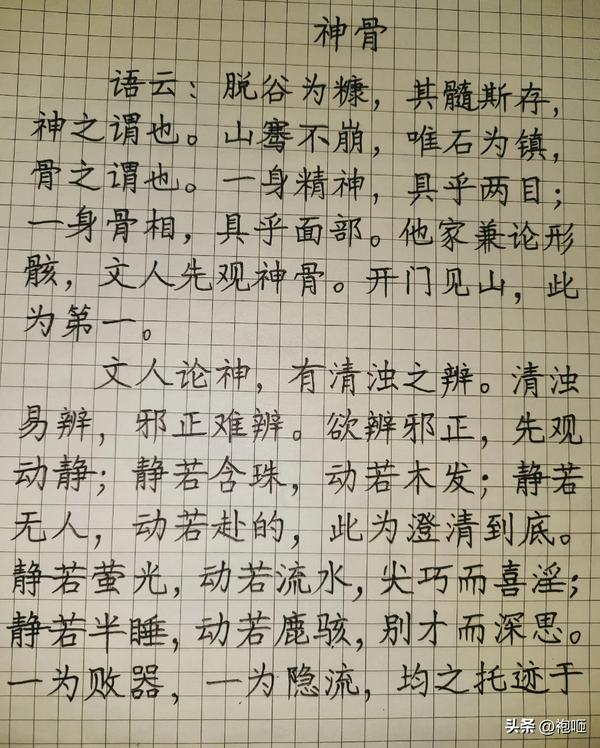 神骨
语云：脱谷为糠，其髓斯存，
神之谓也。山骞不崩，唯石为镇，
骨之谓也。一身精神，具乎两目；
一身骨相，具乎面部。他家兼论形
骸，文人先观神骨。开门见山，此
为第一。
文人论神，有清浊之辨。清浊
易辨，邪正难辨。欲辨邪正，先观
动静；静若含珠，动若木发；静若
无人，动若赴的，此为澄清到底。
静若萤光，动若流水，尖巧而喜淫；
静若半睡，动若鹿骇，别才而深思。
一为败器，一为隐流，均之托迹于
头条 @袍咂